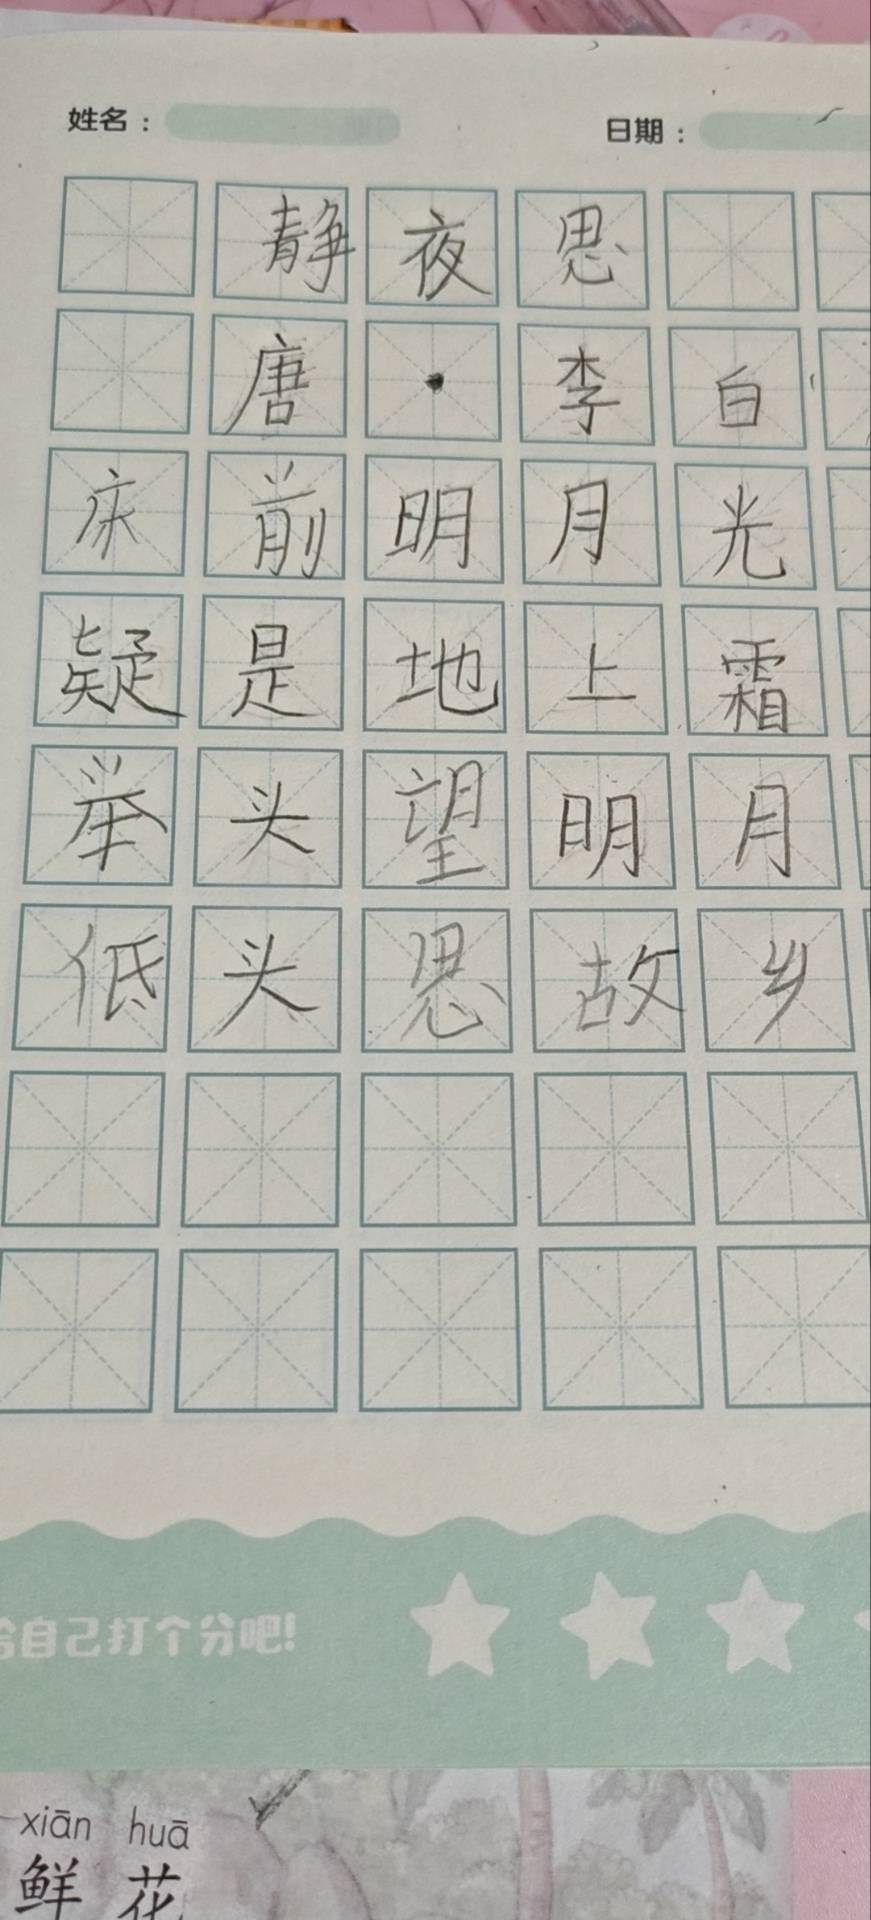 姓名： 日期：
静夜思
唐·李白
床前明月光
疑是地上霜
举头望明月
低头思故乡
给自己打个分吧!
xiān huā
鲜花